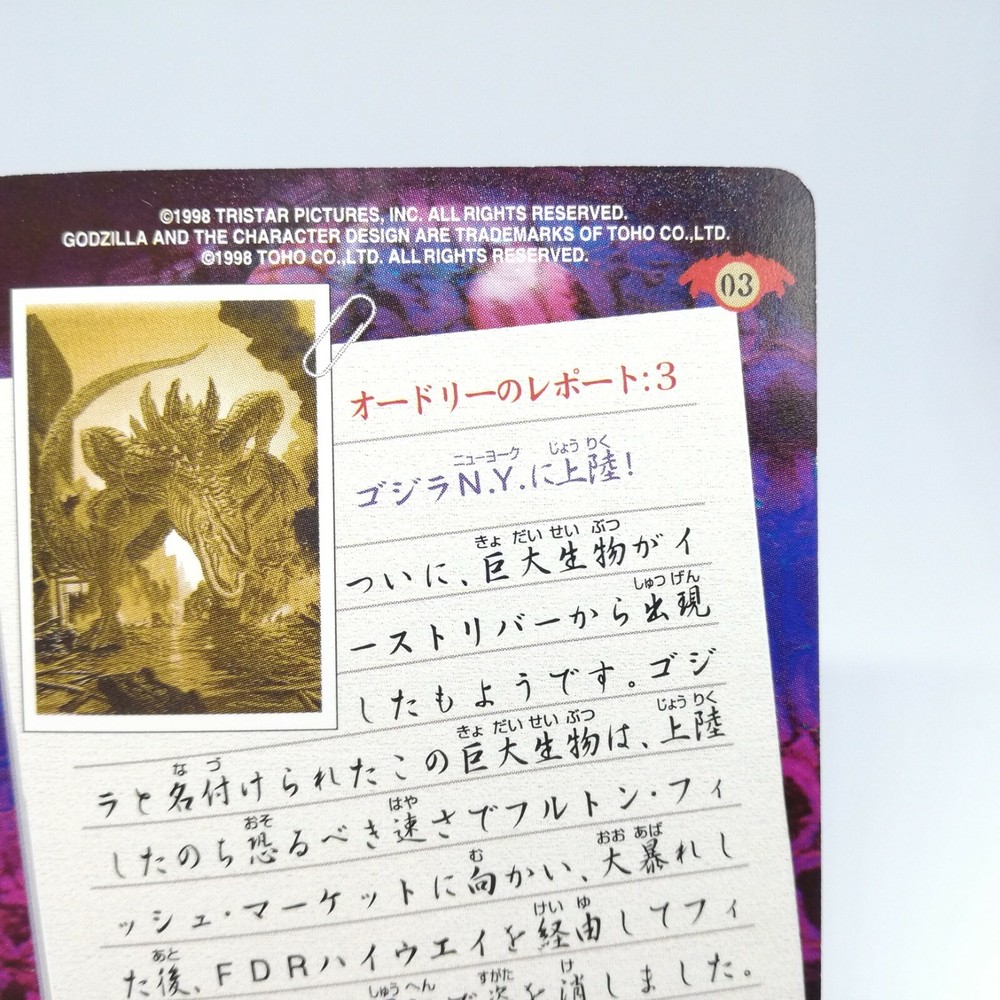 ©1998 TRISTAR PICTURES, INC. ALL RIGHTS RESERVED.
GODZILLA AND THE CHARACTER DESIGN ARE TRADEMARKS OF TOHO CO.,LTD.
©1998 TOHO CO.,LTD. ALL RIGHTS RESERVED.
03
オードリーのレポート:3
ニューヨーク じょう りく
ゴジラN.Y.に上陸!
きょ だい せい ぶつ
ついに、巨大生物がイ
しゅつ げん
ーストリバーから出現
したもようです。ゴジ
きょ だい せい ぶつ じょう りく
な づ
ラと名付けられたこの巨大生物は、上陸
おそ はや
したのち恐るべき速さでフルトン・フィ
む おお あば
ッシュ・マーケットに向かい、大暴れし
あと けい ゆ
た後、FDRハイウエイを経由してフィ
しゅう へん すがた け
で姿を消しました。